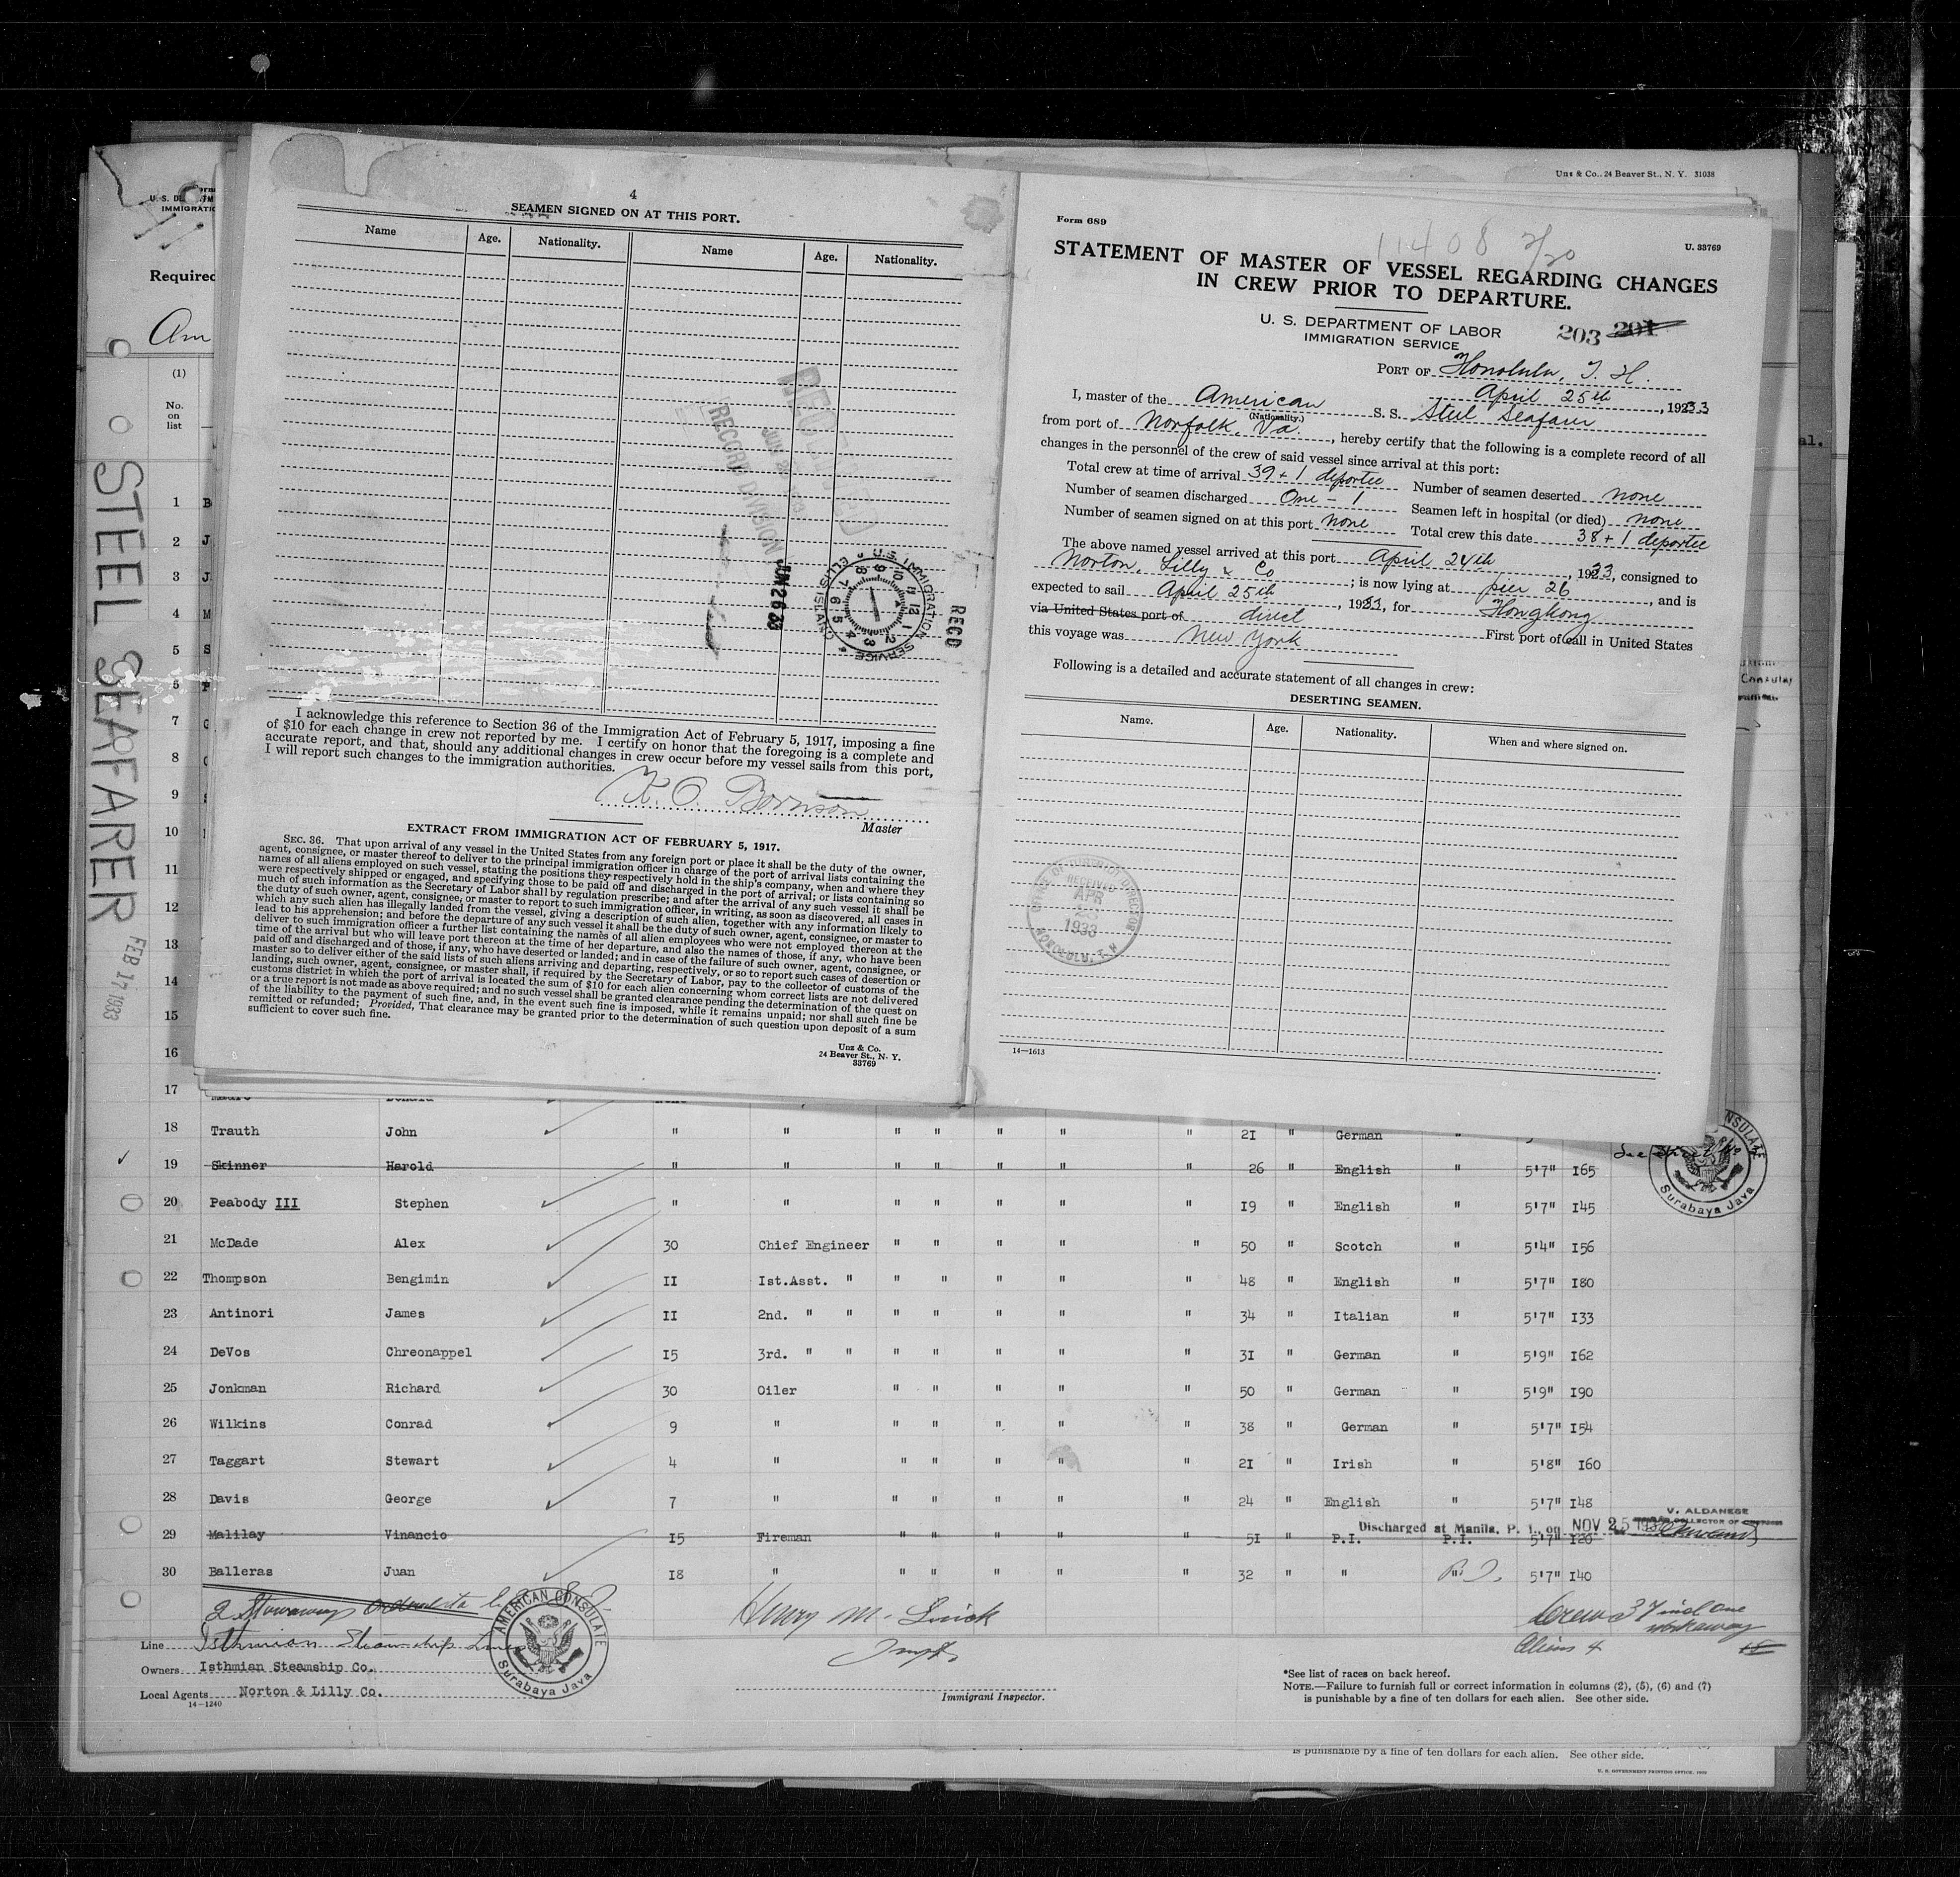 Unz & Co., 24 Beaver St., N. Y. 31038
IMMIGRATIO
Required
Am
(1)
No.
on
list
STEEL SEAFARER
FEB 17 1933
4
SEAMEN SIGNED ON AT THIS PORT.
Name Age. Nationality. Name Age. Nationality.
RECEIVED
RECORD DIVISION
JUN 26 33
U.S. IMMIGRATION SERVICE
ELLIS ISLAND
RECD
I acknowledge this reference to Section 36 of the Immigration Act of February 5, 1917, imposing a fine
of $10 for each change in crew not reported by me. I certify on honor that the foregoing is a complete and
accurate report, and that, should any additional changes in crew occur before my vessel sails from this port,
I will report such changes to the immigration authorities.
K. O. Bornson
Master
EXTRACT FROM IMMIGRATION ACT OF FEBRUARY 5, 1917.
SEC. 36. That upon arrival of any vessel in the United States from any foreign port or place it shall be the duty of the owner,
agent, consignee, or master thereof to deliver to the principal immigration officer in charge of the port of arrival lists containing the
names of all aliens employed on such vessel, stating the positions they respectively hold in the ship's company, when and where they
were respectively shipped or engaged, and specifying those to be paid off and discharged in the port of arrival; or lists containing so
much of such information as the Secretary of Labor shall by regulation prescribe; and after the arrival of any such vessel it shall be
the duty of such owner, agent, consignee, or master to report to such immigration officer, in writing, as soon as discovered, all cases in
which any such alien has illegally landed from the vessel, giving a description of such alien, together with any information likely to
lead to his apprehension; and before the departure of any such vessel it shall be the duty of such owner, agent, consignee, or master to
deliver to such immigration officer a further list containing the names of all alien employees who were not employed thereon at the
time of the arrival but who will leave port thereon at the time of her departure, and also the names of those, if any, who have been
paid off and discharged and of those, if any, who have deserted or landed; and in case of the failure of such owner, agent, consignee, or
master so to deliver either of the said lists of such aliens arriving and departing, respectively, or so to report such cases of desertion or
landing, such owner, agent, consignee, or master shall, if required by the Secretary of Labor, pay to the collector of customs of the
customs district in which the port of arrival is located the sum of $10 for each alien concerning whom correct lists are not delivered
or a true report is not made as above required; and no such vessel shall be granted clearance pending the determination of the question
of the liability to the payment of such fine, and, in the event such fine is imposed, while it remains unpaid; nor shall such fine be
remitted or refunded; Provided, That clearance may be granted prior to the determination of such question upon deposit of a sum
sufficient to cover such fine.
Unz & Co.
24 Beaver St., N. Y.
33769
Form 689
11408 2/20
U. 33769
STATEMENT OF MASTER OF VESSEL REGARDING CHANGES
IN CREW PRIOR TO DEPARTURE.
U. S. DEPARTMENT OF LABOR
IMMIGRATION SERVICE
203 201
PORT OF Honolulu, T. H.
April 25th, 1933
I, master of the American S. S. Steel Seafarer
(Nationality.)
from port of Norfolk, Va., hereby certify that the following is a complete record of all
changes in the personnel of the crew of said vessel since arrival at this port:
Total crew at time of arrival 39 + 1 deportee Number of seamen deserted none
Number of seamen discharged One - 1 Seamen left in hospital (or died) none
Number of seamen signed on at this port none Total crew this date 38 + 1 deportee
The above named vessel arrived at this port April 24th, 1933, consigned to
Norton, Lilly & Co; is now lying at pier 26, and is
expected to sail April 25th, 1933, for Hongkong
via United States port of direct First port of call in United States
this voyage was New York
Following is a detailed and accurate statement of all changes in crew:
DESERTING SEAMEN.
Name. Age. Nationality. When and where signed on.
RECEIVED
APR
1933
HONOLULU, T.H.
14—1613
1 B
2 J
3 J
4 M
5 S
7
8
9
10
11
12
13
14
15
16
17
18 Trauth John " " " " " " " 21 " German "
19 Skinner Harold " " " " " " " 26 " English " 5'7" 165
20 Peabody III Stephen " " " " " " " 19 " English " 5'7" 145
21 McDade Alex 30 Chief Engineer " " " " " 50 " Scotch " 5'4" 156
22 Thompson Bengimin II Ist.Asst. " " " " " " 48 " English " 5'7" 180
23 Antinori James II 2nd. " " " " " " " 34 " Italian " 5'7" 133
24 DeVos Chreonappel 15 3rd. " " " " " " " 31 " German " 5'9" 162
25 Jonkman Richard 30 Oiler " " " " " 50 " German " 5'9" 190
26 Wilkins Conrad 9 " " " " " " 38 " German " 5'7" 154
27 Taggart Stewart 4 " " " " " " 21 " Irish " 5'8" 160
28 Davis George 7 " " " " " " 24 " English " 5'7" 148
V. ALDANESE
COLLECTOR OF CUSTOMS
Discharged at Manila, P. I., on NOV 25 193
29 Malilay Vinancio 15 Fireman " " " " " 51 " P.I. P.I. 5'7" 120
30 Balleras Juan 18 " " " " " " 32 " " " 5'7" 140
AMERICAN CONSULATE
Surabaya Java
2 Stowaways
Henry M.
Crew 37 incl one
workaway
Aliens 4
Line Isthmian Steamship Lines
Owners Isthmian Steamship Co.
Local Agents Norton & Lilly Co.
14—1240
AMERICAN CONSULATE
Surabaya Java
Immigrant Inspector.
*See list of races on back hereof.
NOTE.—Failure to furnish full or correct information in columns (2), (5), (6) and (7)
is punishable by a fine of ten dollars for each alien. See other side.
is punishable by a fine of ten dollars for each alien. See other side.
U. S. GOVERNMENT PRINTING OFFICE